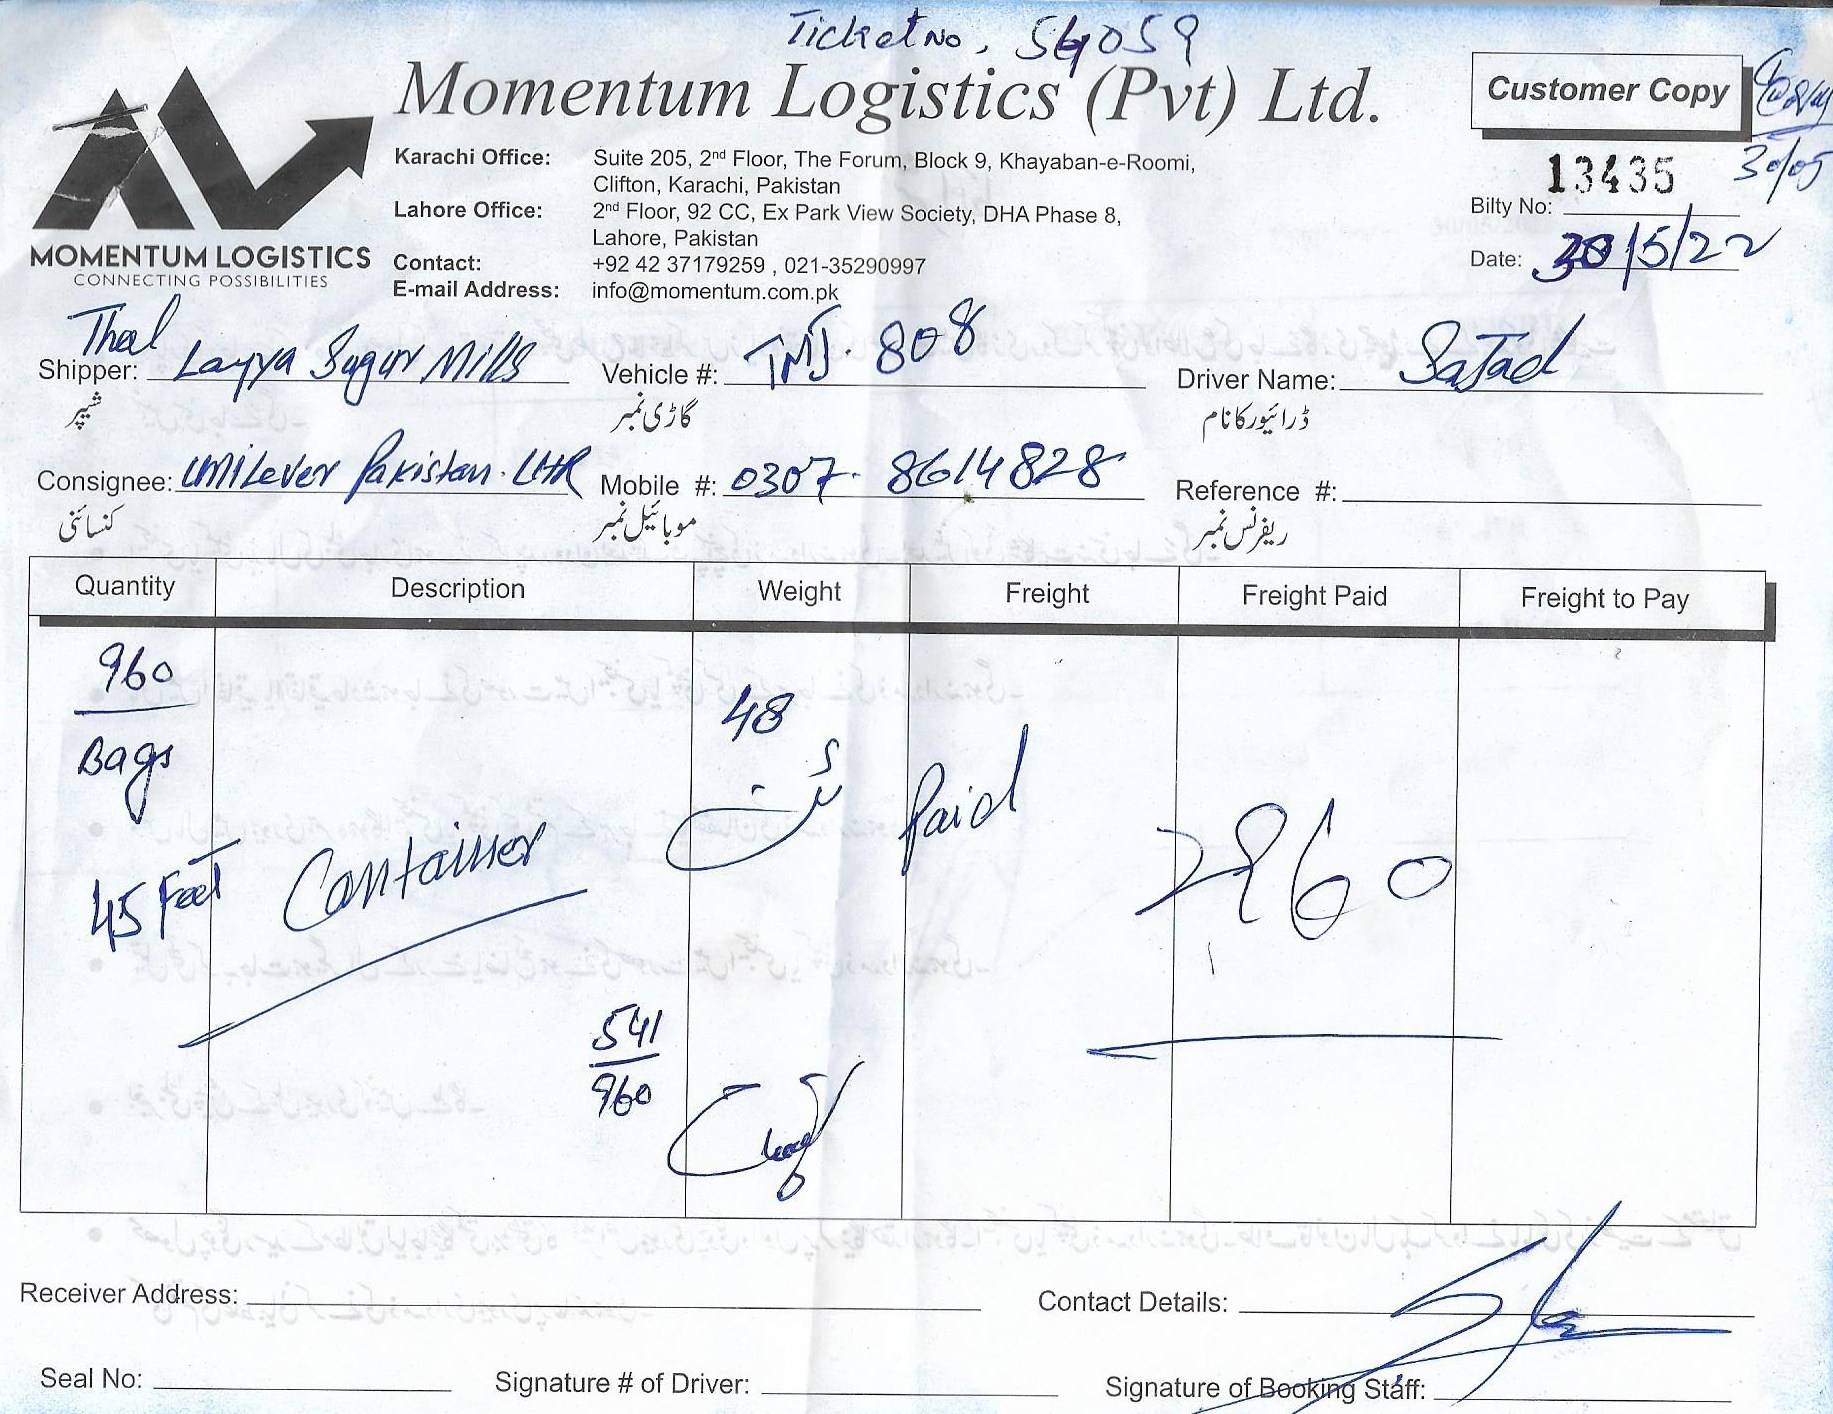 Ticket No. 54059
Momentum Logistics (Pvt) Ltd.
Customer Copy
30/05
MOMENTUM LOGISTICS
CONNECTING POSSIBILITIES
Karachi Office: Suite 205, 2nd Floor, The Forum, Block 9, Khayaban-e-Roomi,
Clifton, Karachi, Pakistan
Lahore Office: 2nd Floor, 92 CC, Ex Park View Society, DHA Phase 8,
Lahore, Pakistan
Contact: +92 42 37179259 , 021-35290997
E-mail Address: info@momentum.com.pk
13435
Bilty No:
Date: 30/5/22
Thal
Shipper: Layya Sugar Mills Vehicle #: TMJ. 808 Driver Name: Sajad
شیپر گاڑی نمبر ڈرائیور کا نام
Consignee: Unilever Pakistan. LHR Mobile #: 0307. 8614828 Reference #:
کنسائنی موبائیل نمبر ریفرنس نمبر
Quantity Description Weight Freight Freight Paid Freight to Pay
960
Bags
48
ٹن
Paid
2960
45 Feet Container
541
960
Receiver Address: Contact Details:
Seal No: Signature # of Driver: Signature of Booking Staff: